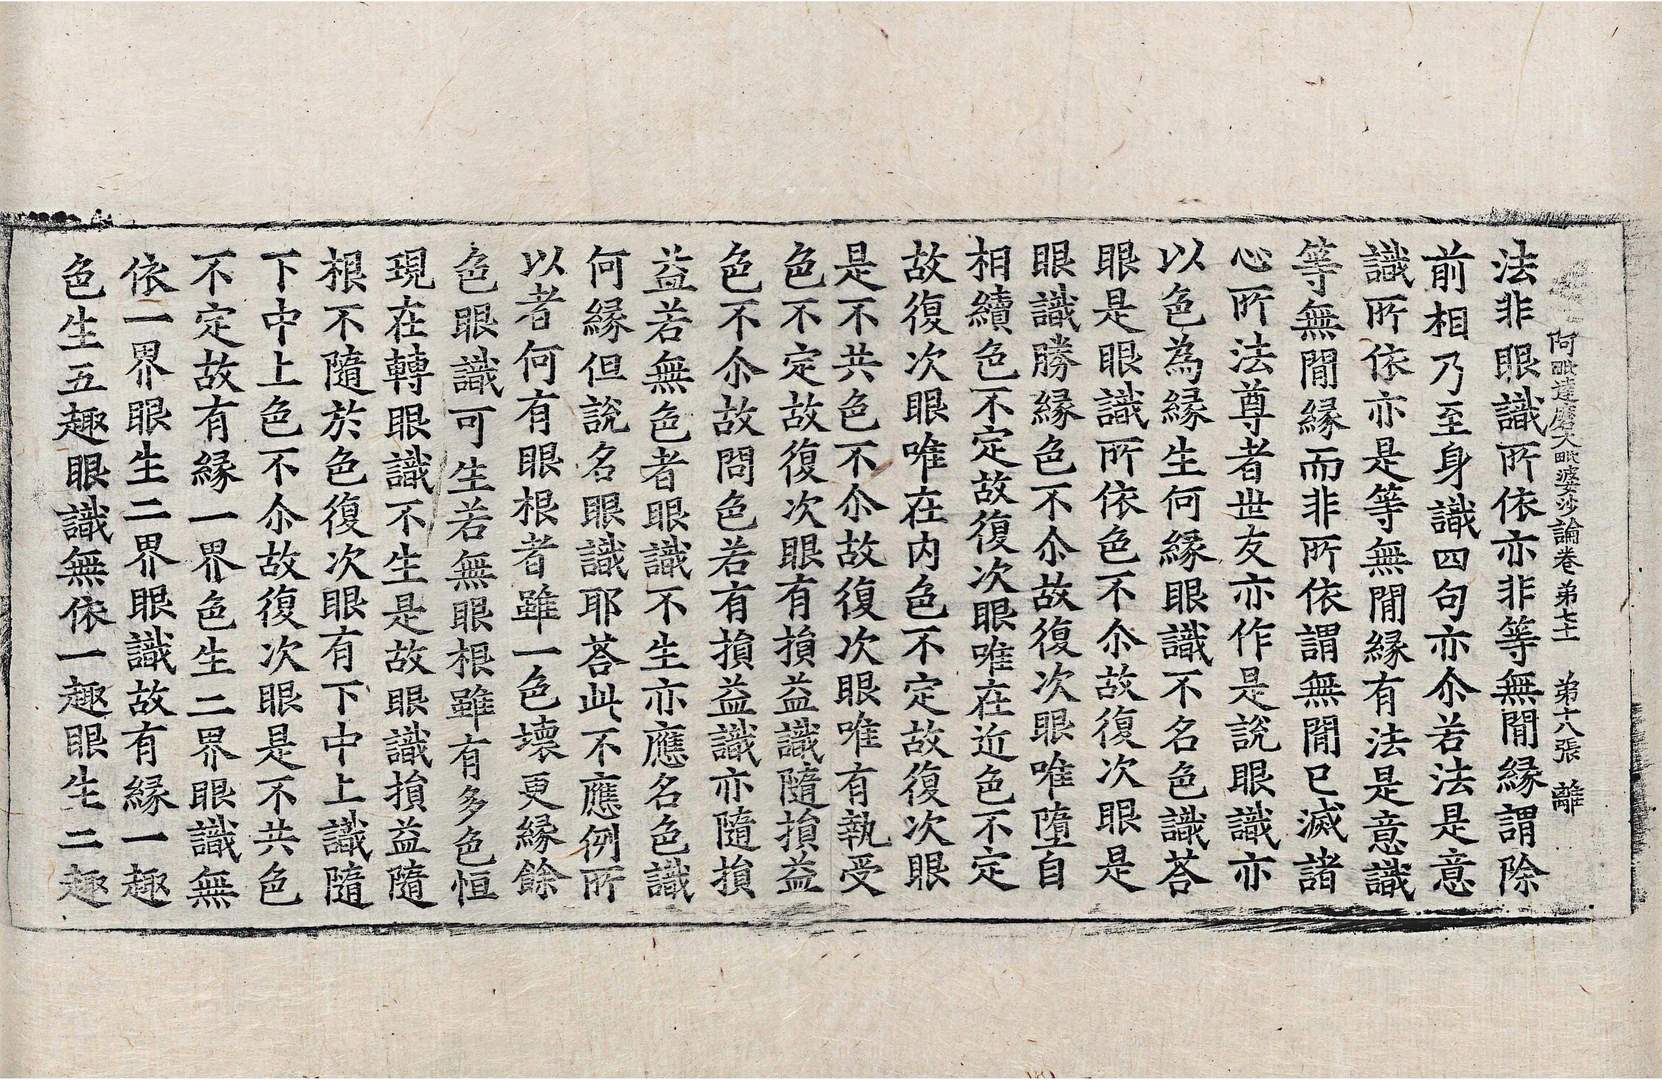 阿毗達磨大毗婆沙論卷弟七十一 弟十八張 離
法非眼識所依亦非等無閒縁謂除
前相乃至身識四句亦尒若法是意
識所依亦是等無閒縁有法是意識
等無閒縁而非所依謂無閒已滅諸
心所法尊者世友亦作是說眼識亦
以色為縁生何縁眼識不名色識荅
眼是眼識所依色不尒故復次眼是
眼識勝縁色不尒故復次眼唯墮自
相續色不定故復次眼唯在近色不定
故復次眼唯在内色不定故復次眼
是不共色不尒故復次眼唯有執受
色不定故復次眼有損益識隨損益
色不尒故問色若有損益識亦隨損
益若無色者眼識不生亦應名色識
何縁但說名眼識耶荅此不應例所
以者何有眼根者雖一色壞更縁餘
色眼識可生若無眼根雖有多色恒
現在轉眼識不生是故眼識損益隨
根不隨於色復次眼有下中上識隨
下中上色不尒故復次眼是不共色
不定故有縁一界色生二界眼識無
依一界眼生二界眼識故有縁一趣
色生五趣眼識無依一趣眼生二趣